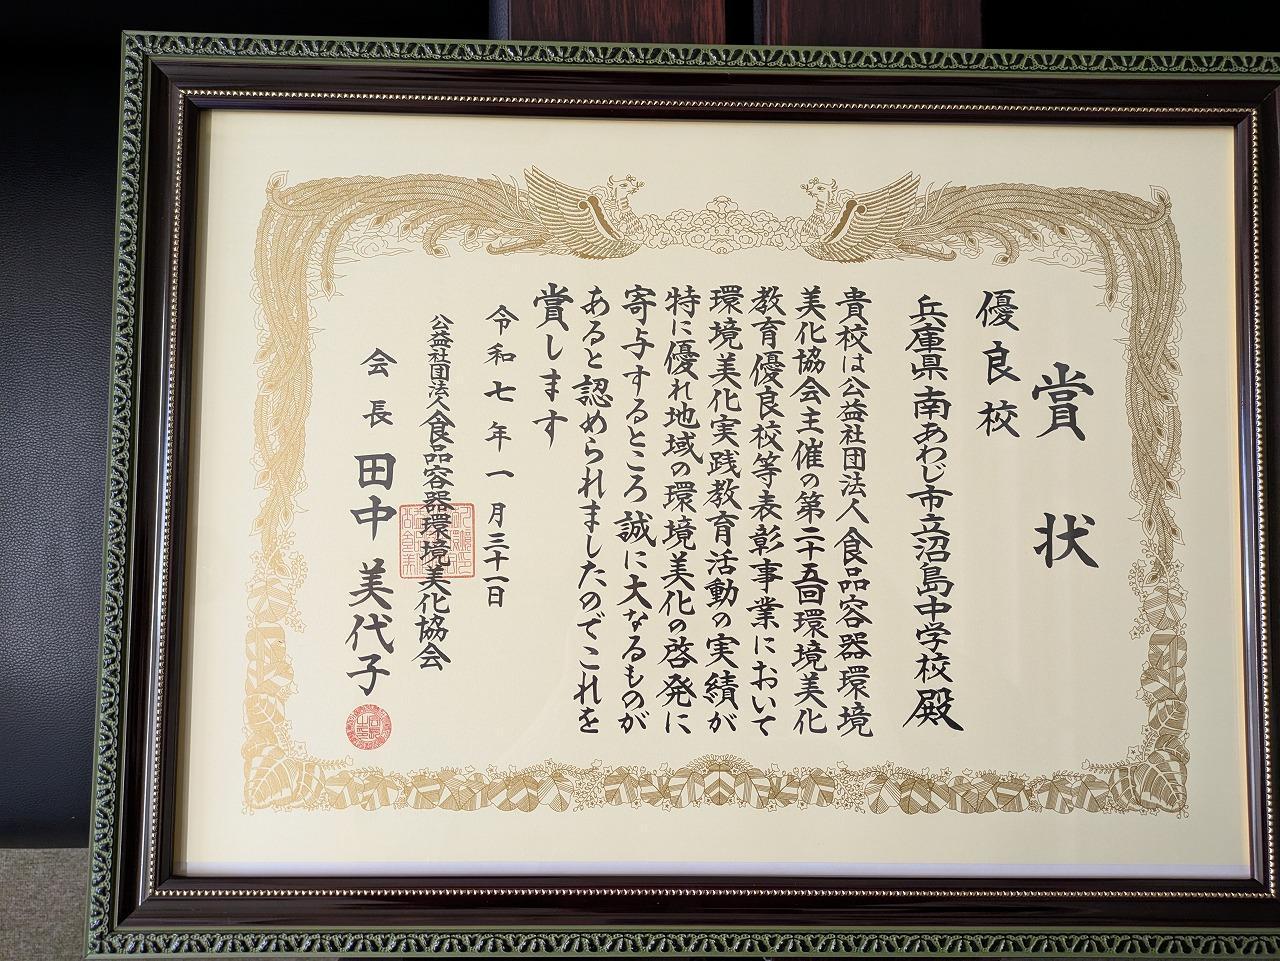 賞状
優良校
兵庫県南あわじ市立沼島中学校殿
貴校は公益社団法人食品容器環境
美化協会主催の第二十五回環境美化
教育優良校等表彰事業において
環境美化実践教育活動の実績が
特に優れ地域の環境美化の啓発に
寄与するところ誠に大なるものが
あると認められましたのでこれを
賞します
令和七年一月三十一日
公益社団法人食品容器環境美化協会
会長 田中美代子